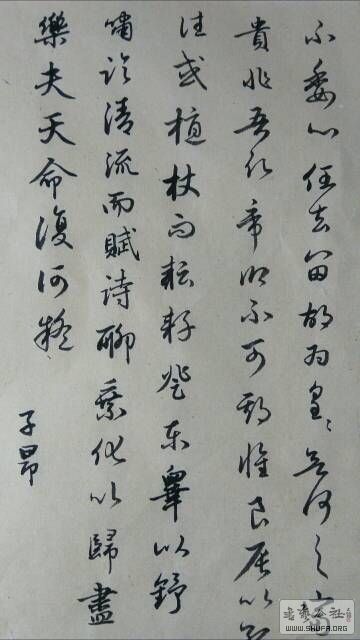 不委心任去留胡為皇皇欲何之富
貴非吾願帝鄉不可期懷良辰以孤
往或植杖而耘耔登東皋以舒
嘯臨清流而賦詩聊乘化以歸盡
樂夫天命復何疑
子昂
WWW.SHUFA.ORG